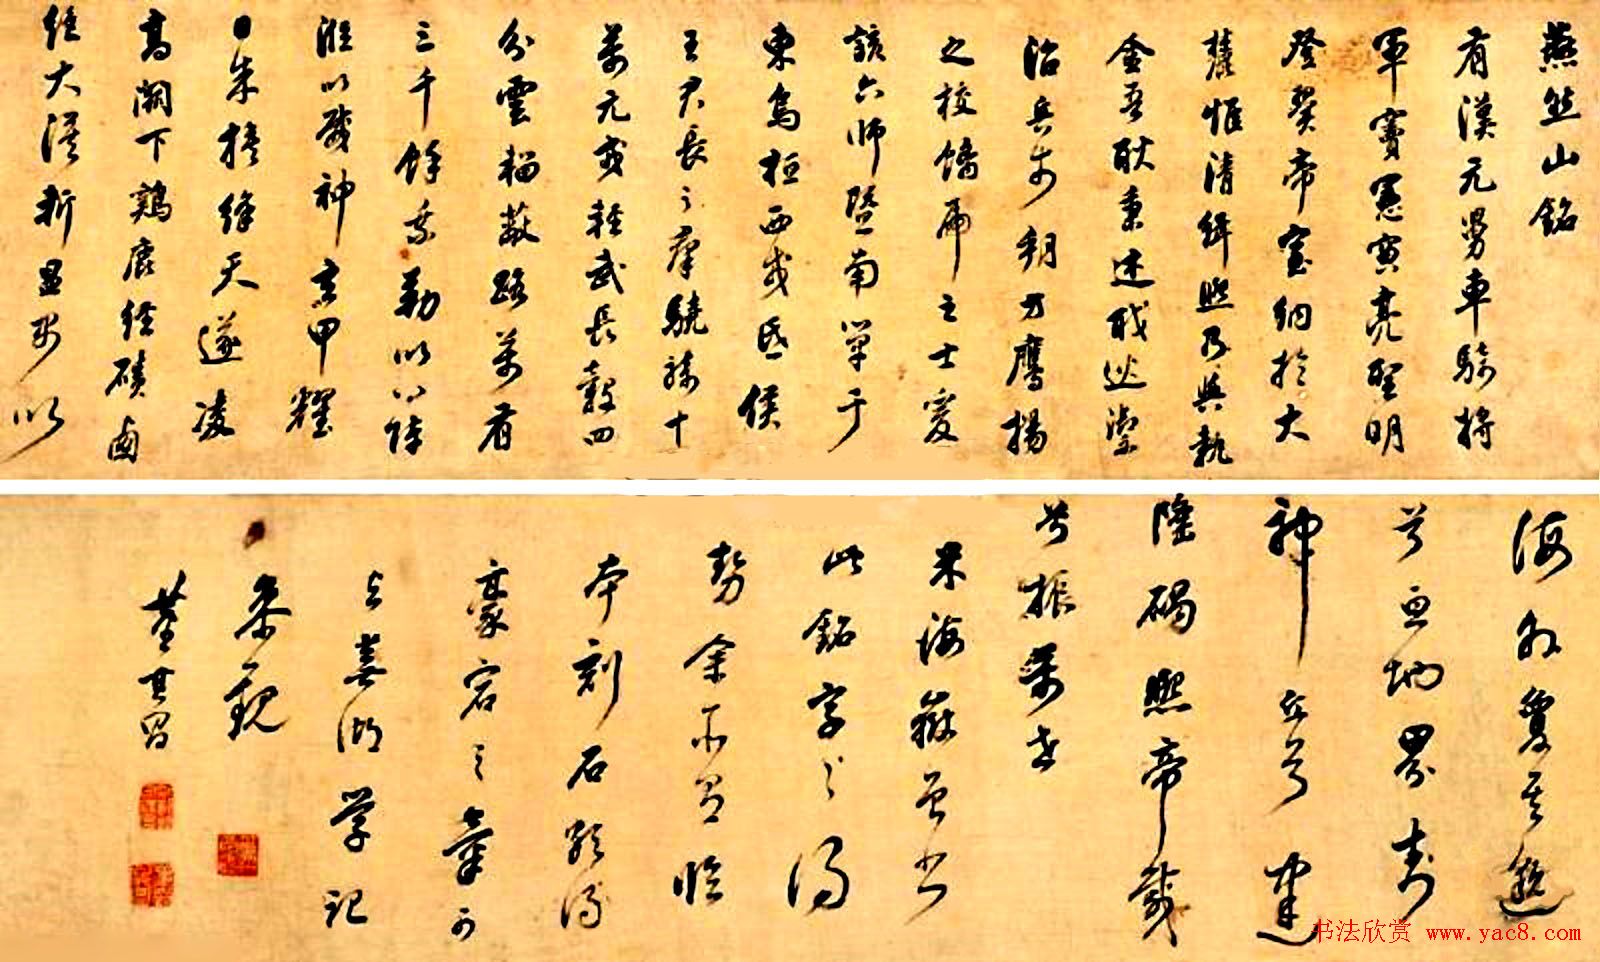 燕然山銘
有漢元舅車騎將
軍竇憲寅亮聖明
登翼帝室納於大
麓惟清緝熙乃與執
金吾耿秉述職巡禦
治兵於朔方鷹揚
之校螭虎之士爰
該六師暨南單于
東烏桓西戎氐侯
王君長之群驍騎十
萬元戎輕武長轂四
分雲輜蔽路萬有
三千餘乘勒以八陣
涖以威神玄甲耀
日朱旗絳天遂凌
高闕下雞鹿經磧鹵
絕大漠斬溫禺以
海外夐其邈
兮亘地界封
神丘兮建
隆碣熙帝載
兮振萬世
米海嶽曾書
此銘字字得
勢余臨
本刻石頗得
豪宕之氣可
與湖學記
參觀
董其昌
书法欣赏 www.yac8.com